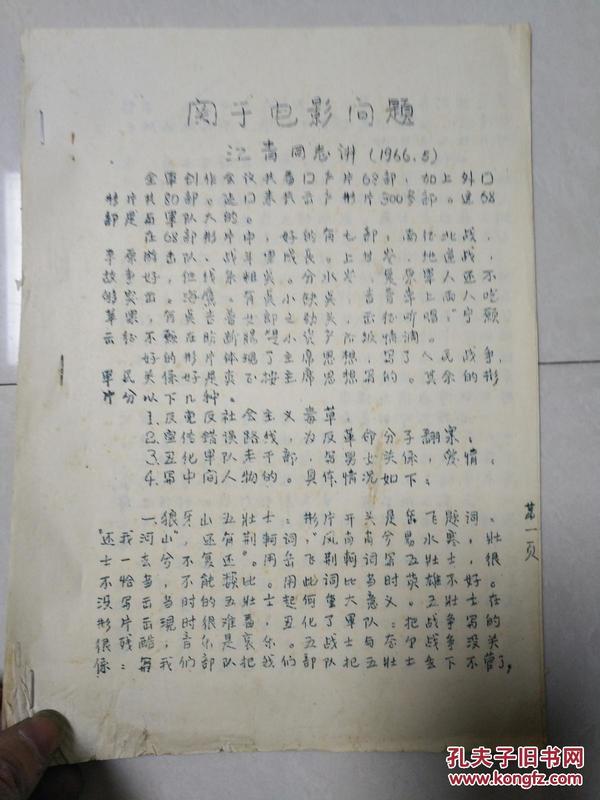 关于电影问题
江青同志讲(1966.5)
全军创作会议共看口产片68部,加上外口
影片共80部。进口来共云产影片300多部。这68
部是与军队大的。
在68部影片中,好的有七部,南征北战,
平原游击队、战斗里成长。上甘岭、地道战,
故事好,但线条粗。分水岭、是军人还不
够突出。海鹰。有小缺,吉普车上两人吃
苹果,有着女郎之劲,云征听唱,"宁愿
云征不愿在断肠"是小资产阶级情调。
好的影片体现了主席思想,写了人民战争,
军民关係好是按主席思想写的。其余的影
片分以下几种。
1、反党反社会主义毒草。
2、宣传错误路线,为反革命分子翻案。
3、丑化军队老干部,写男女关係,爱情。
4、写中间人物的。具体情况如下:
一、狼牙山五壮士:影片开头是岳飞题词:
"还我河山",不还有"荆轲"风萧萧兮易水寒,壮
士一去兮不复还"。用岳飞荆轲词写五壮士,很
不恰当,不能探比用此词比当时英雄不好。
没写当时的五壮士起何重大意义。五壮士在
影片击击时很难看、丑化了军士。把战争写的
很残酷现,音乐是哀乐。五部队与壮士战争没关
係:与我们部队把我们战士把五壮士丢下不管了,
第一页
孔夫子旧书网
www.kongfz.com